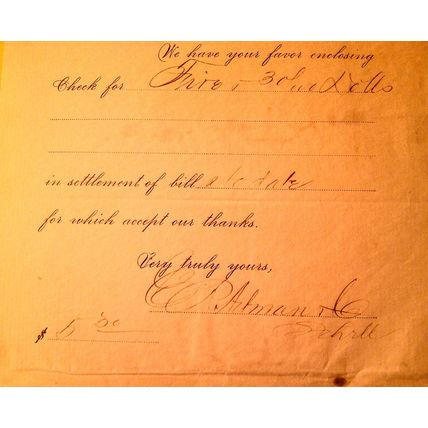 We have your favor enclosing
Check for Five
in settlement of bill to date
for which accept our thanks.
Very truly yours,
Altman & Co
$ 5